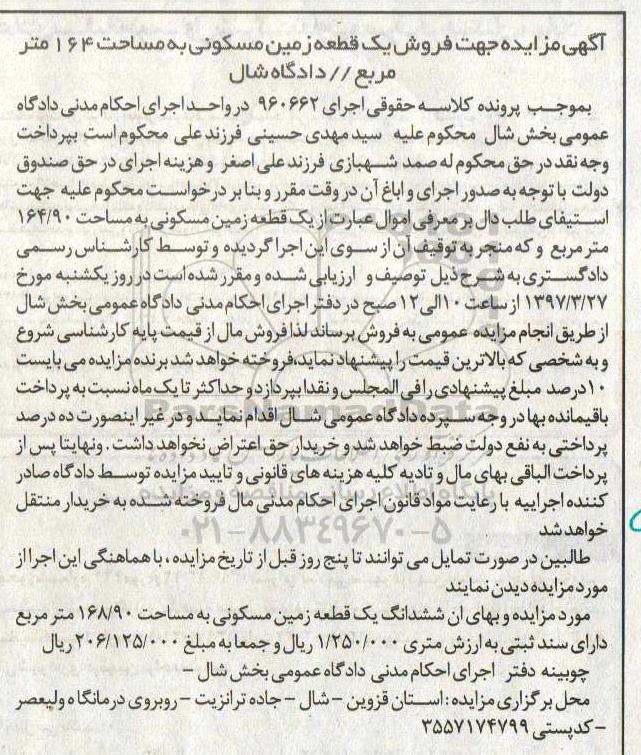 آگهی مزایده جهت فروش یک قطعه زمین مسکونی به مساحت ۱۶۴ متر
مربع // دادگاه شال
بموجب پرونده کلاسه حقوقی اجرای ۹۶۰۶۶۲ در واحد اجرای احکام مدنی دادگاه
عمومی بخش شال محکوم علیه سید مهدی حسینی فرزند علی محکوم است بپرداخت
وجه نقد در حق محکوم له صمد شهبازی فرزند علی اصغر و هزینه اجرای در حق صندوق
دولت با توجه به صدور اجرای و اباغ آن در وقت مقرر و بنا بر درخواست محکوم علیه جهت
استیفای طلب دال بر معرفی اموال عبارت از یک قطعه زمین مسکونی به مساحت ۱۶۴/۹۰
متر مربع و که منجر به توقیف آن از سوی این اجرا گردیده و توسط کارشناس رسمی
دادگستری به شرح ذیل توصیف و ارزیابی شده و مقرر شده است در روز یکشنبه مورخ
۱۳۹۷/۳/۲۷ از ساعت ۱۰ الی ۱۲ صبح در دفتر اجرای احکام مدنی دادگاه عمومی بخش شال
از طریق انجام مزایده عمومی به فروش برساند لذا فروش مال از قیمت پایه کارشناسی شروع
و به شخصی که بالاترین قیمت را پیشنهاد نماید، فروخته خواهد شد برنده مزایده می بایست
۱۰ درصد مبلغ پیشنهادی را فی المجلس و نقدا بپردازد و حداکثر تا یک ماه نسبت به پرداخت
باقیمانده بها در وجه سپرده دادگاه عمومی شال اقدام نمایند و در غیر اینصورت ده درصد
پرداختی به نفع دولت ضبط خواهد شد و خریدار حق اعتراض نخواهد داشت . ونهایتا پس از
پرداخت الباقی بهای مال و تادیه کلیه هزینه های قانونی و تایید مزایده توسط دادگاه صادر
کننده اجراییه با رعایت مواد قانون اجرای احکام مدنی مال فروخته شده به خریدار منتقل
خواهد شد
طالبین در صورت تمایل می توانند تا پنج روز قبل از تاریخ مزایده ، با هماهنگی این اجرا از
مورد مزایده دیدن نمایند
مورد مزایده و بهای ان ششدانگ یک قطعه زمین مسکونی به مساحت ۱۶۸/۹۰ متر مربع
دارای سند ثبتی به ارزش متری ۱/۲۵۰/۰۰۰ ریال و جمعا به مبلغ ۲۰۶/۱۲۵/۰۰۰ ریال
چوبینه دفتر اجرای احکام مدنی دادگاه عمومی بخش شال –
محل برگزاری مزایده : استان قزوین – شال – جاده ترانزیت – روبروی درمانگاه ولیعصر
– کدپستی ۳۵۵۷۱۷۴۷۹۹
ParsNamadData
۰۲۱-۸۸۳۴۹۶۷۰-۵